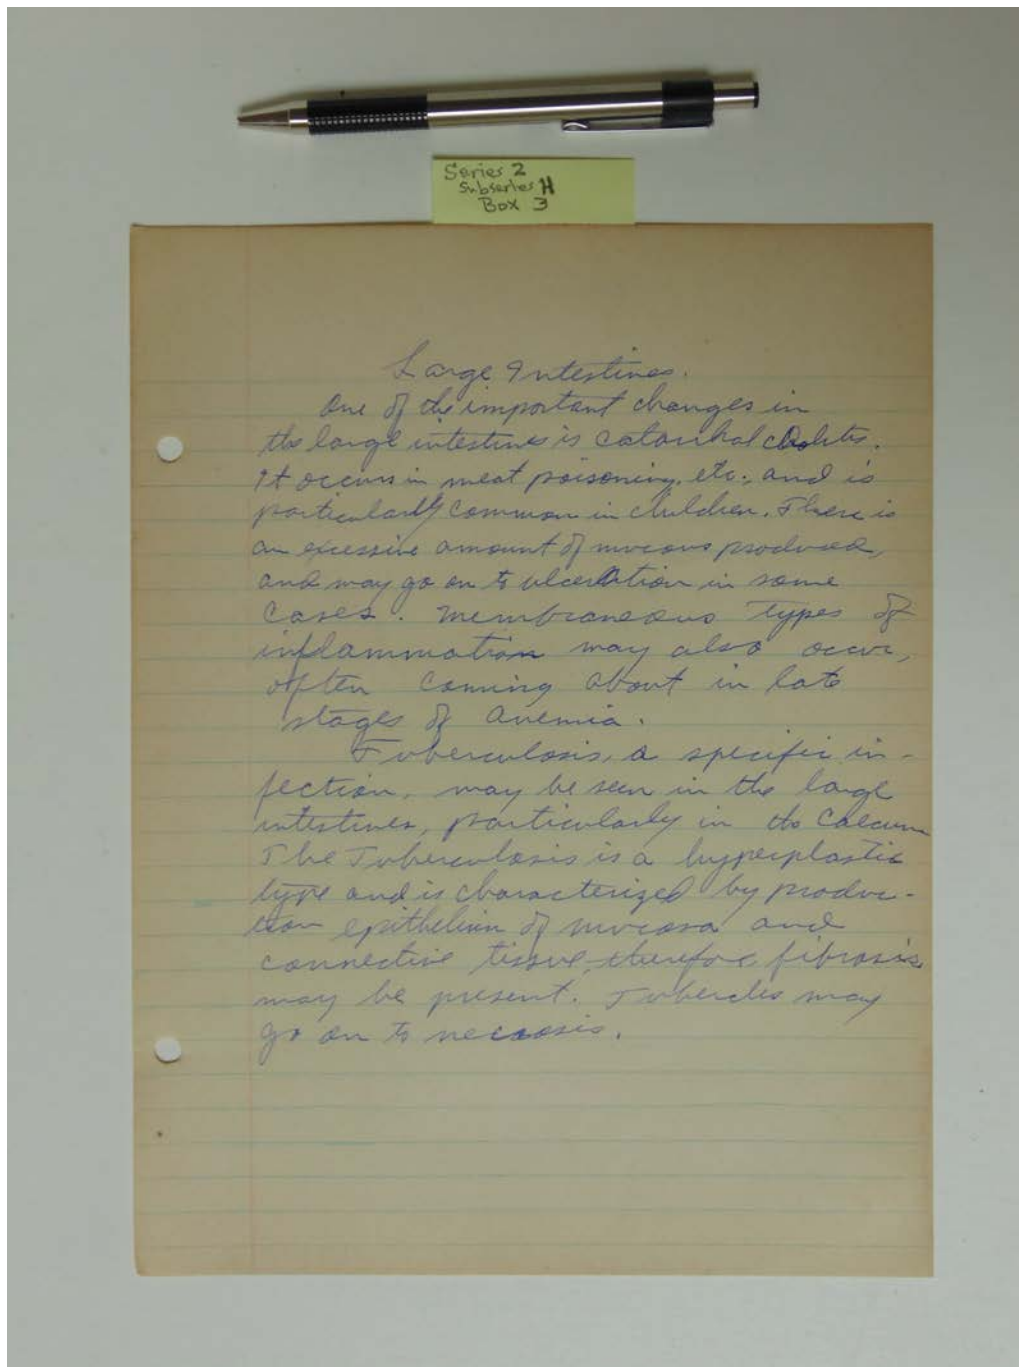 Series 2
Subseries H
Box 3
Large Intestines.
One of the important changes in
the large intestines is catarrhal colitis.
It occurs in meat poisoning, etc., and is
particularly common in children. There is
an excessive amount of mucous produced,
and may go on to ulceration in some
cases. Membraneous types of
inflammation may also occur,
often coming about in late
stages of anemia.
Tuberculosis, a specific in-
fection, may be seen in the large
intestines, particularly in the Caecum
The Tuberculosis is a hyperplastic
type and is characterized by produc-
tion epithelium of mucosa and
connective tissue, therefore fibrosis
may be present. Tubercles may
go on to necrosis.